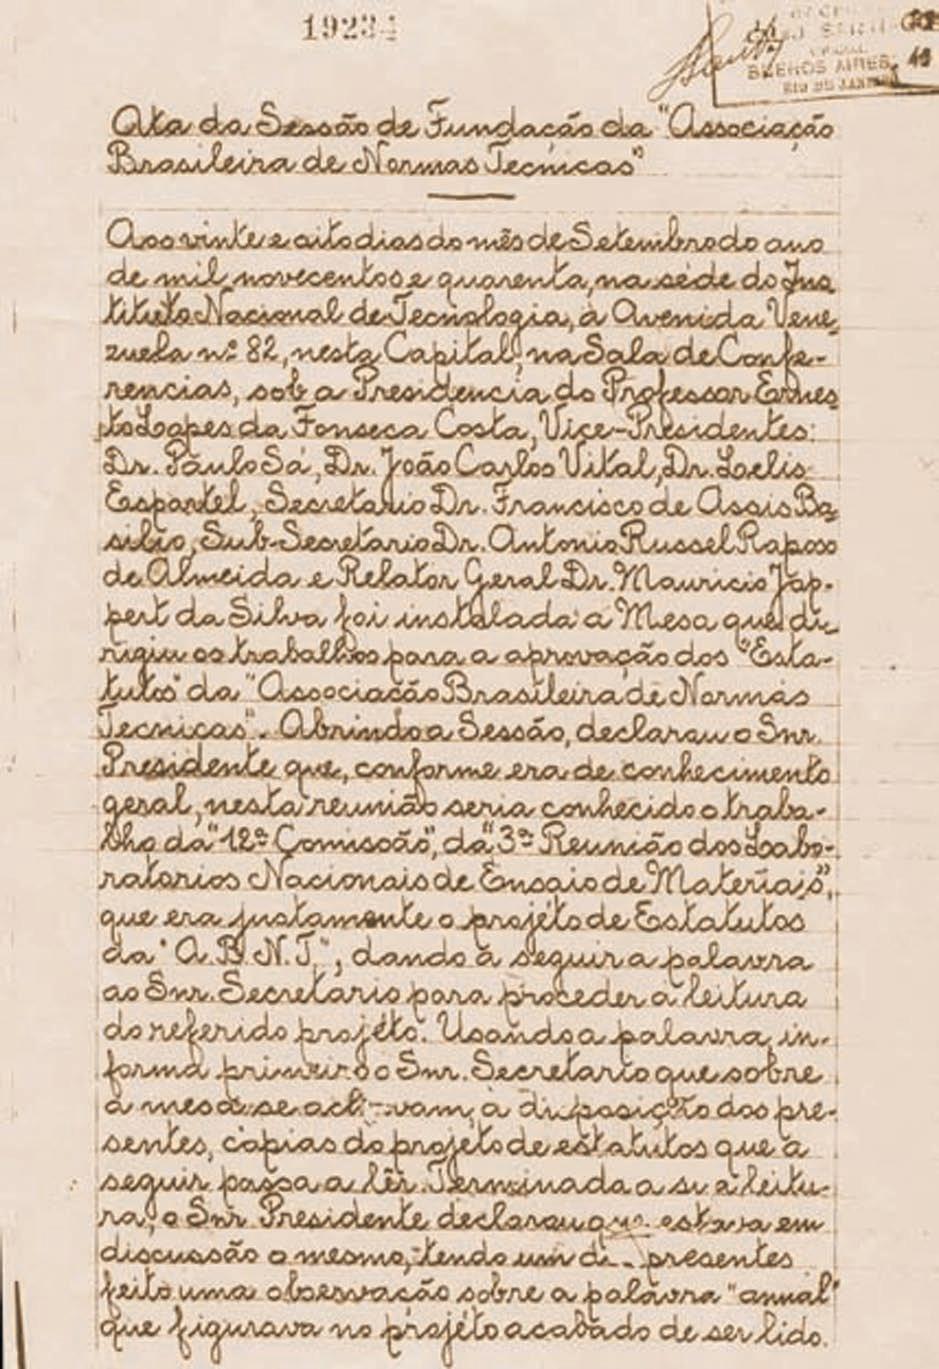 19234
BUENOS AIRES
RIO DE JANEIRO
Ata da Sessão de Fundação da "Associação
Brasileira de Normas Tecnicas"
Aos vinte e oito dias do mês de Setembro do ano
de mil novecentos e quarenta, na séde do Ins-
tituto Nacional de Tecnologia, à Avenida Vene-
zuela nº 82, nesta Capital, na Sala de Confe-
rencias, sob a Presidencia do Professor Ernes-
to Lopes da Fonseca Costa, Vice-Presidentes:
Dr. Paulo Sá, Dr. João Carlos Vital, Dr. Lelis
Espartel, Secretario Dr. Francisco de Assis Ba-
silio, Sub-Secretario Dr. Antonio Russel Raposo
de Almeida e Relator Geral Dr. Mauricio Jop-
pert da Silva foi instalada a Mesa que di-
rigiu os trabalhos para a aprovação dos "Esta-
tutos" da "Associação Brasileira de Normas
Tecnicas". Abrindo a Sessão, declarou o Snr.
Presidente que, conforme era de conhecimento
geral, nesta reunião seria conhecido o traba-
lho da "12ª Comissão", da "3ª Reunião dos Labo-
ratorios Nacionais de Ensaio de Materiais",
que era justamente o projéto de Estatutos
da "A.B.N.T.", dando a seguir a palavra
ao Snr. Secretario para proceder a leitura
do referido projéto. Usando a palavra, in-
forma primeiro o Snr. Secretario que sobre
a mesa se achavam, à disposição dos pre-
sentes, cópias do projéto de estatutos que a
seguir passa a lêr. Terminada a sua leitu-
ra, o Snr. Presidente declarou que estava em
discussão o mesmo, tendo um dos presentes
feito uma observação sobre a palavra "annual"
que figurava no projéto acabado de ser lido.